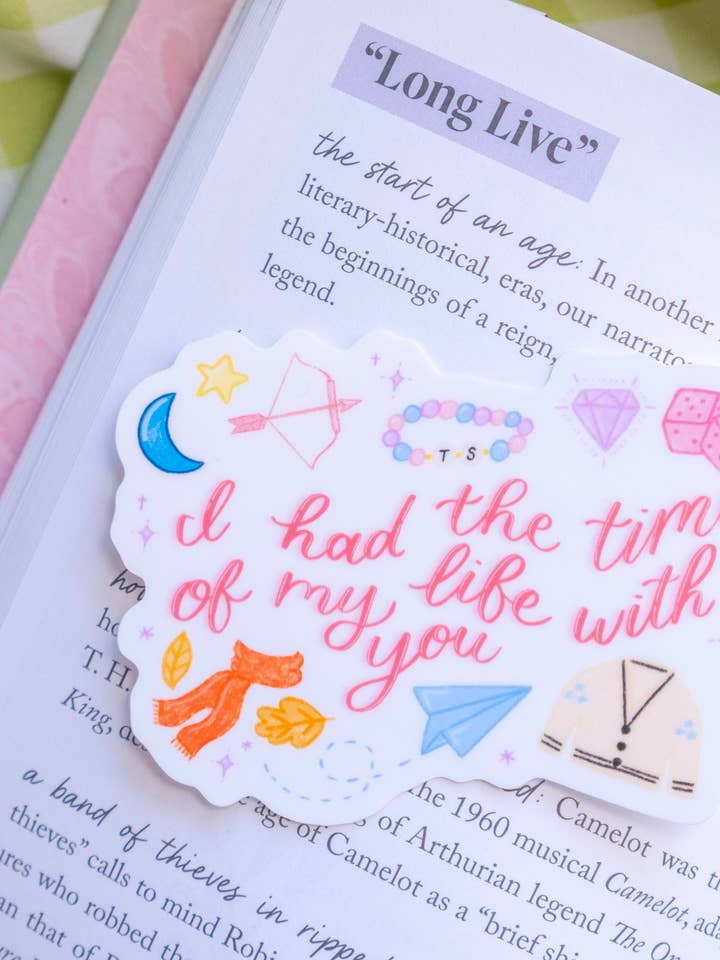 “Long Live”
the start of an age: In another
literary-historical, eras, our narrato
the beginnings of a reign,
legend.
T S
I had the tim
of my life with
you
T. H.
King,
d: Camelot was
The 1960 musical Camelot, ada
age of Camelot as a “brief shi
of Arthurian legend The
a band of thieves in rippe
thieves” calls to mind Robi
ures who robbed th
an that of